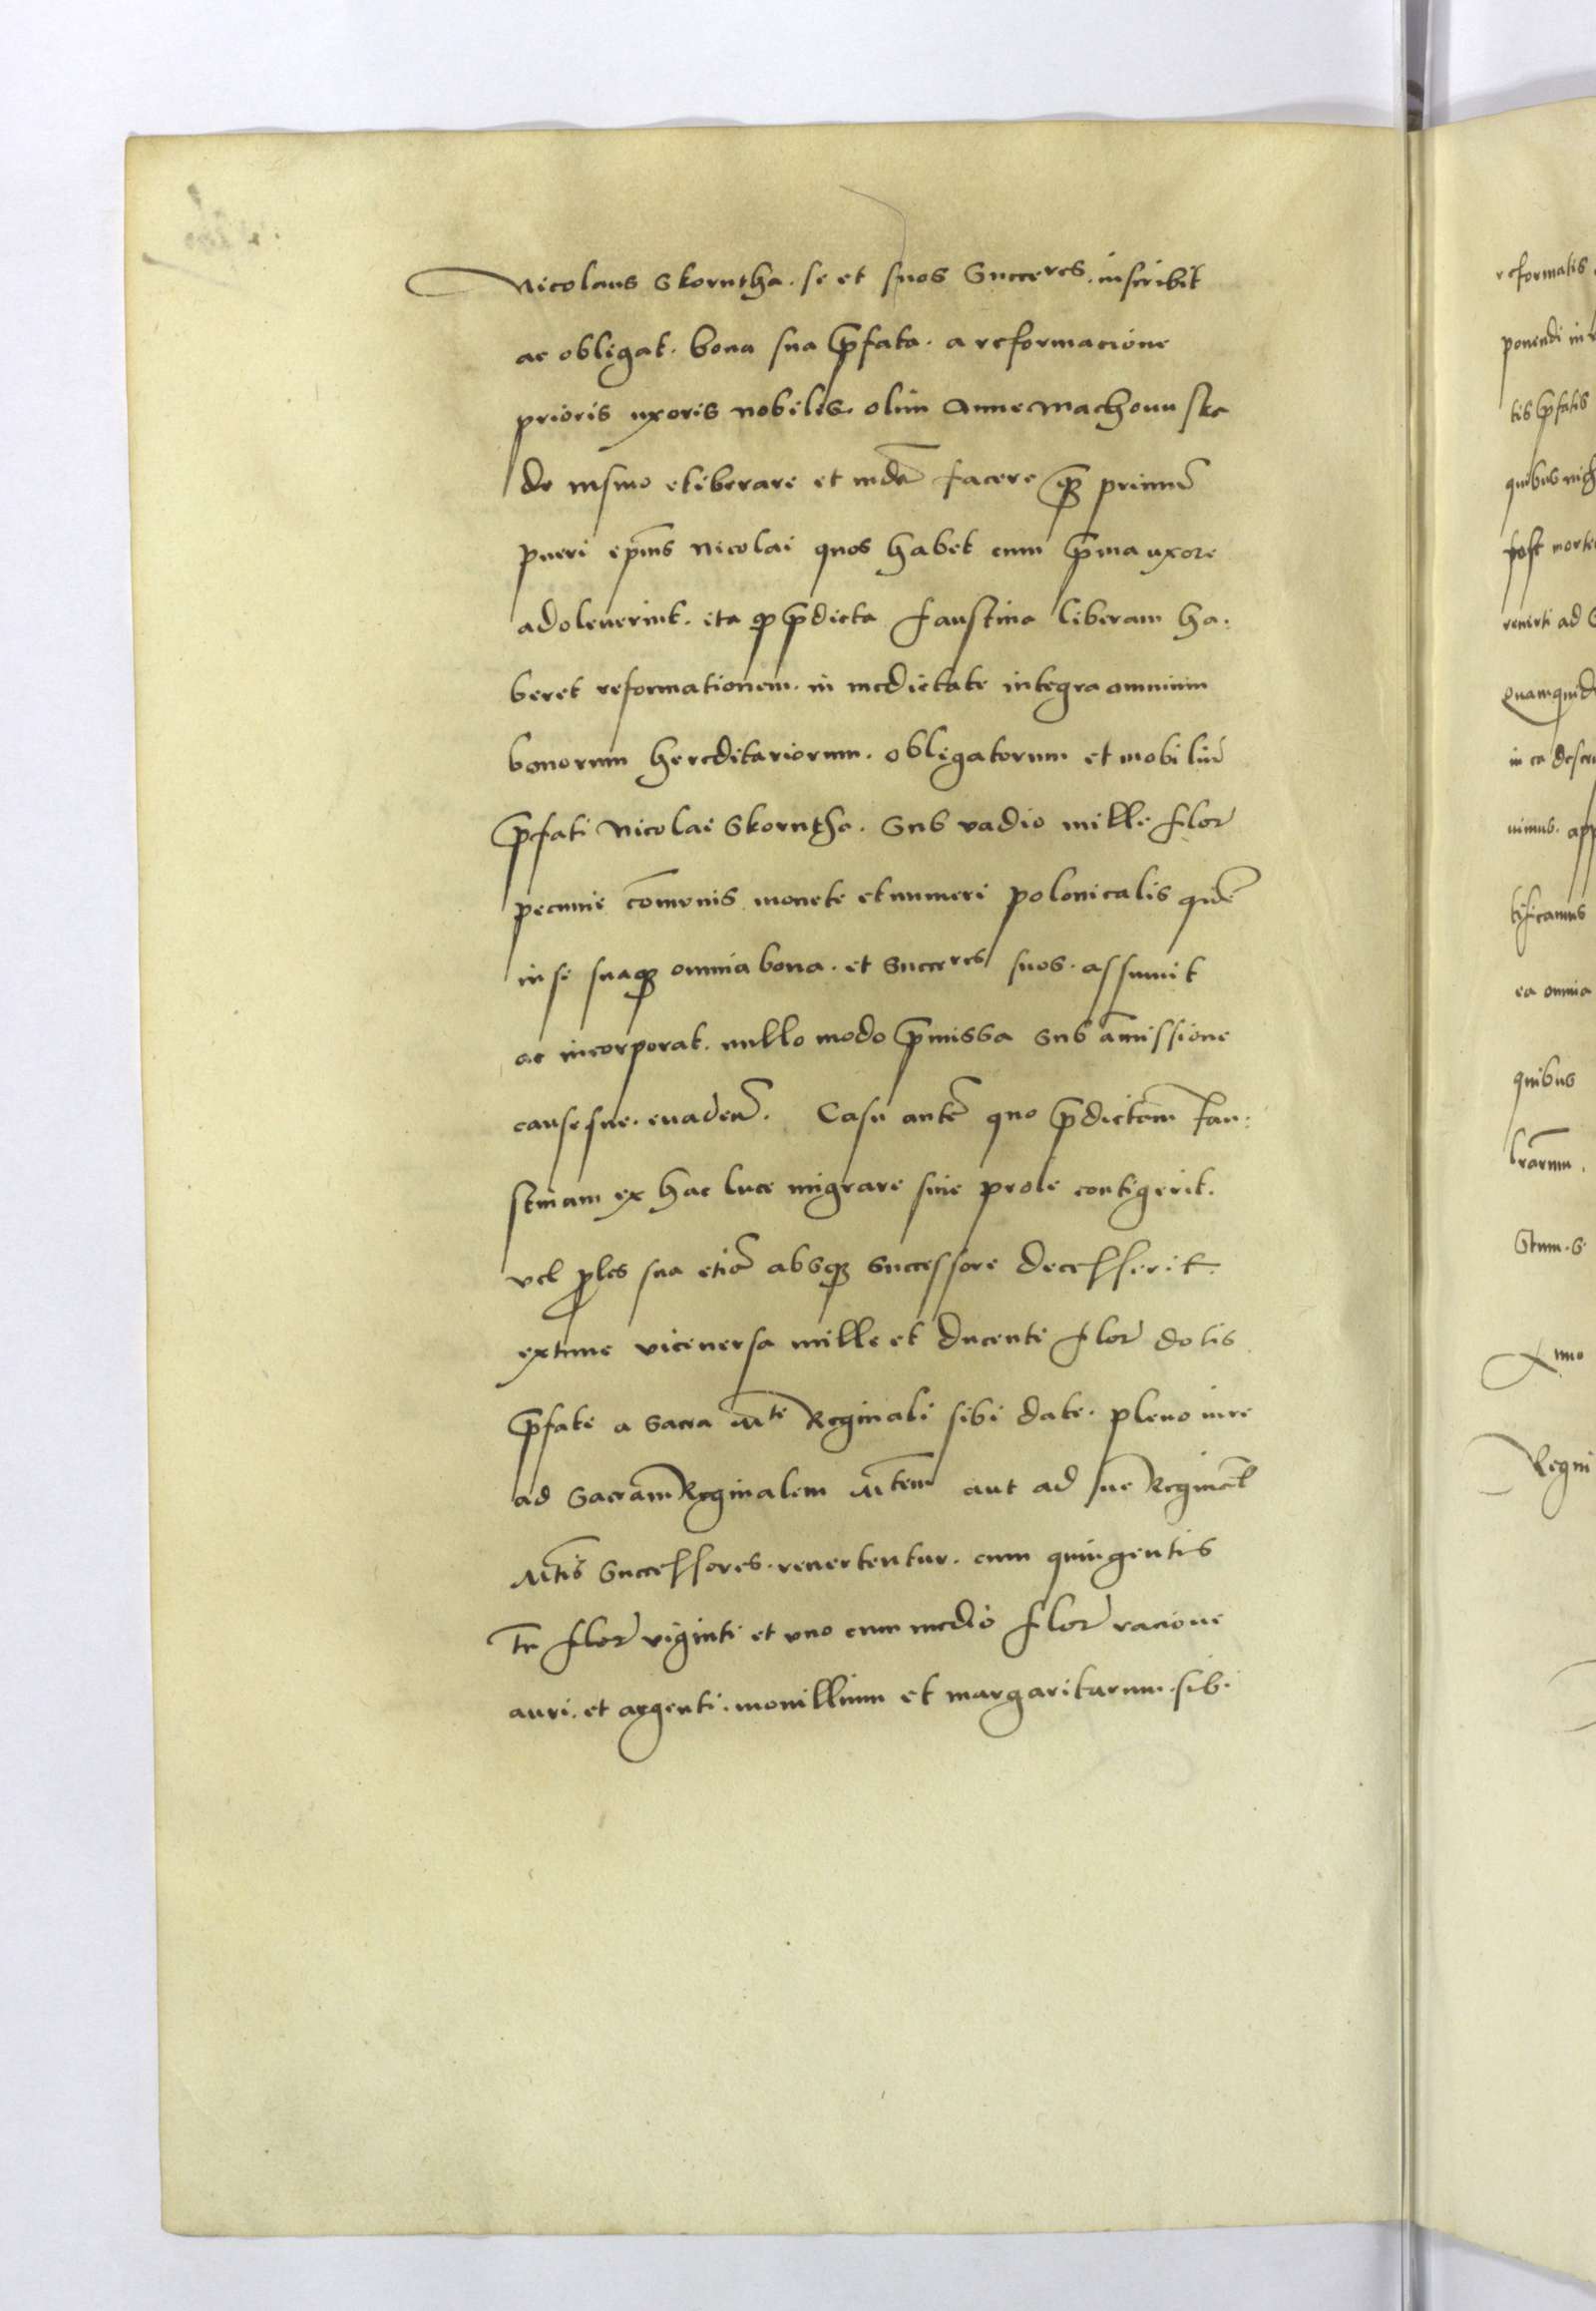 Nicolaus Skorutha. se et suos Succeres. inscribit
ac obligat. bona sua p̄fata. a reformacione
prioris uxoris nobilis. olim Anne Machowuste
de eliberare et facere primū
pueri Nicolai quos habet cum p̄ma uxore
adoleuerint. ita ꝙ p̄dicta Faustina liberam ha:
beret reformationem. in medietate integra omnium
bonorum hereditariorum. obligatorum et mobiliū
p̄fati Nicolai Skorutha. Sub vadio mille flor
pecunie cōmonis monete et numeri polonicalis
in se suaqꝫ omnia bona. et Succeres suos. assumit
ac incorporat. nullo modo p̄missa sub amissione
cause sue. euadeñ. Casu autē quo p̄dictam Fau:
stinam ex hac luce migrare sine prole contigerit.
vel ꝓles sua etiā absqꝫ successore decesserit.
extunc viceuersa mille et ducenti flor dotis
p̄fate a Sacra Mte Reginali sibi date. pleno iure
ad Sacram Reginalem Mtem aut ad sue Reginal
Mtis Successores. reuertentur. cum quingentis
flor viginti et uno cum medio flor racione
auri. et argenti. monillium et margaritarum. sib.
reformatis
ponendi in
tis p̄fatis
quibus nich
post morte
reuerti ad
Quamquide
in ea descri
nimus. app
tificamus
ea omnia
quibus
lrarum.
Regni